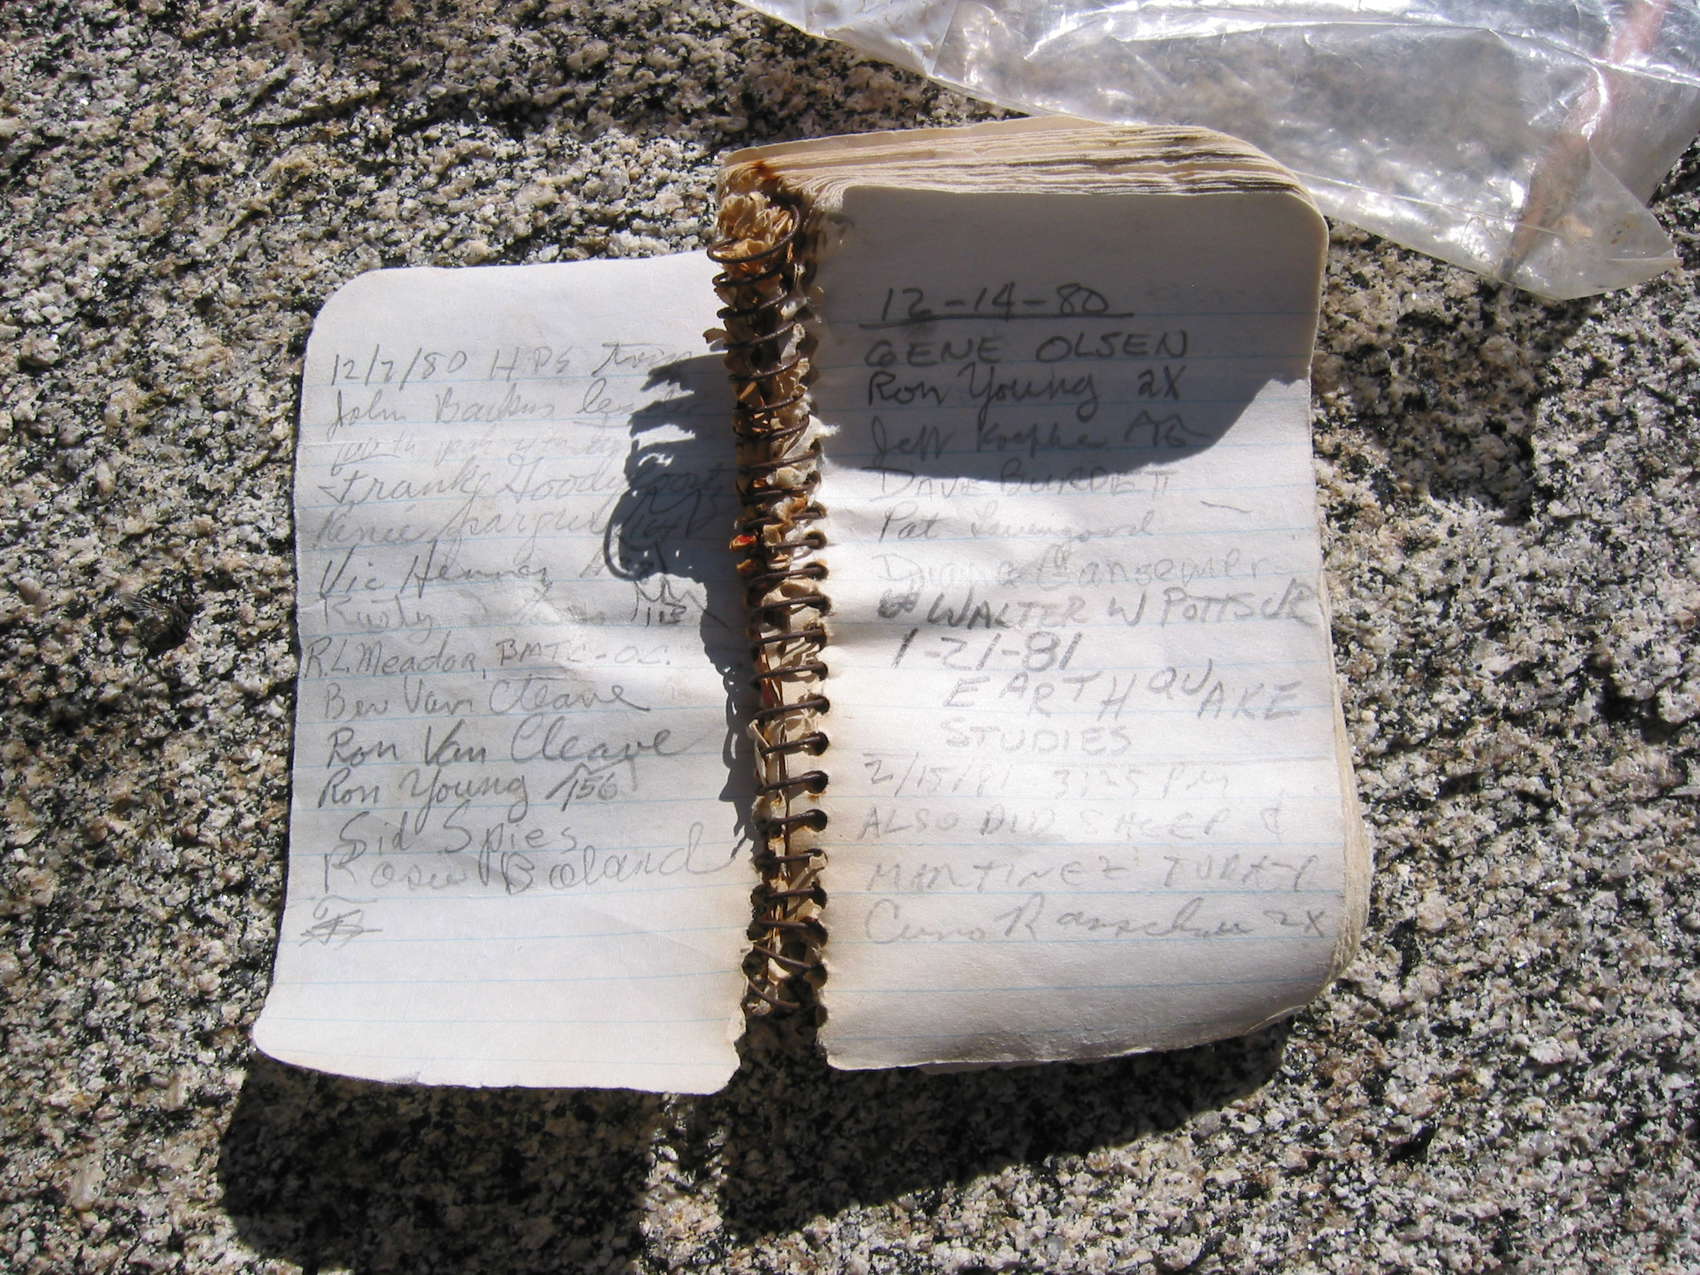 12/7/80 HPS trip
John Backus
Frank Goodykoontz
Vic Henney
Rusty
R.L. Meador, BMTC-O.C.
Bev Van Cleave
Ron Van Cleave
Ron Young 156
Sid Spies
Rosie Boland
12-14-80
GENE OLSEN
Ron Young 2X
Jeff Koepke
DAVE BURDETT
Pat
Diana
WALTER W POTTS JR
1-21-81
EARTHQUAKE
STUDIES
2/15/81 3:25 PM
ALSO DID SHEEP &
MARTINEZ TODAY
2X